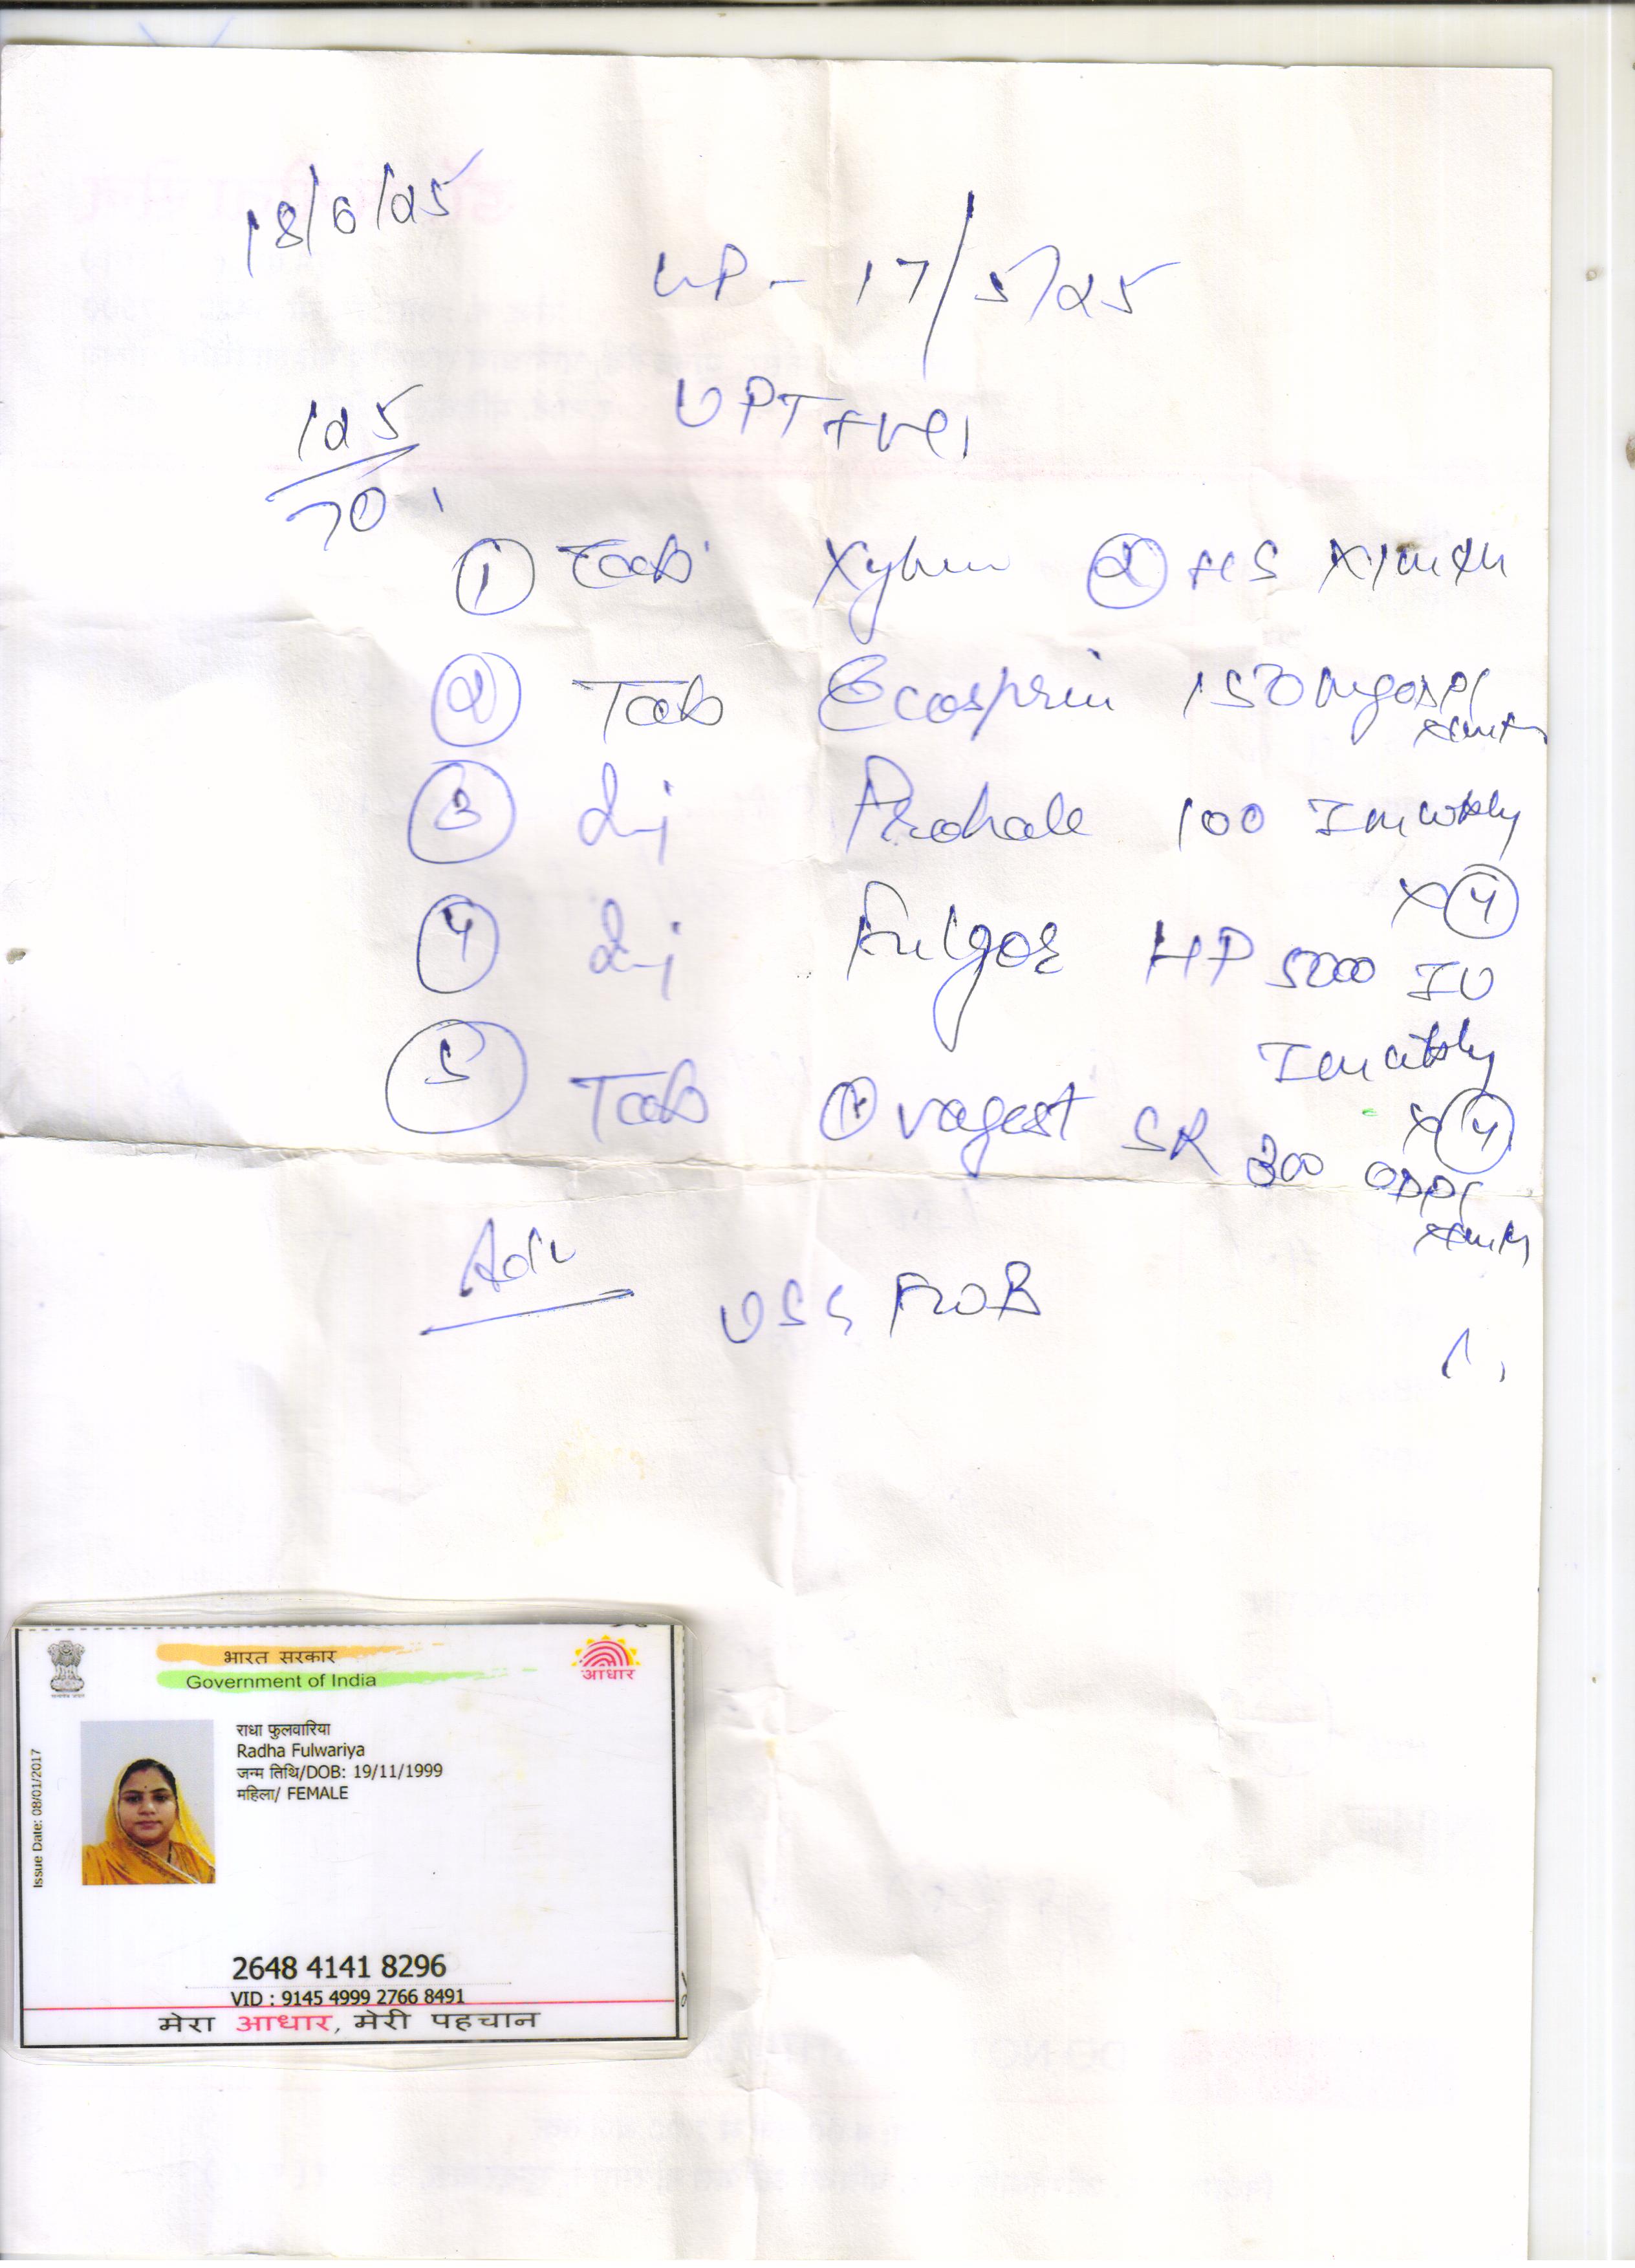 18/6/25
LP - 17/5/25
UPT +ve
125
70
① Tab Xylum ② HS x 1 mth
② Tab Ecosprin 150 mg OD PC
x 1 mth
③ Inj 100 IM wkly
x ④
④ Inj Fulgor HP 5000 IU
IM wkly
x ④
⑤ Tab Ovagest SR 300 OD PC
x 1 mth
Adv
USG FWB
भारत सरकार
Government of India
आधार
राधा फुलवारिया
Radha Fulwariya
जन्म तिथि/DOB: 19/11/1999
महिला/ FEMALE
Issue Date: 08/01/2017
2648 4141 8296
VID : 9145 4999 2766 8491
मेरा आधार, मेरी पहचान